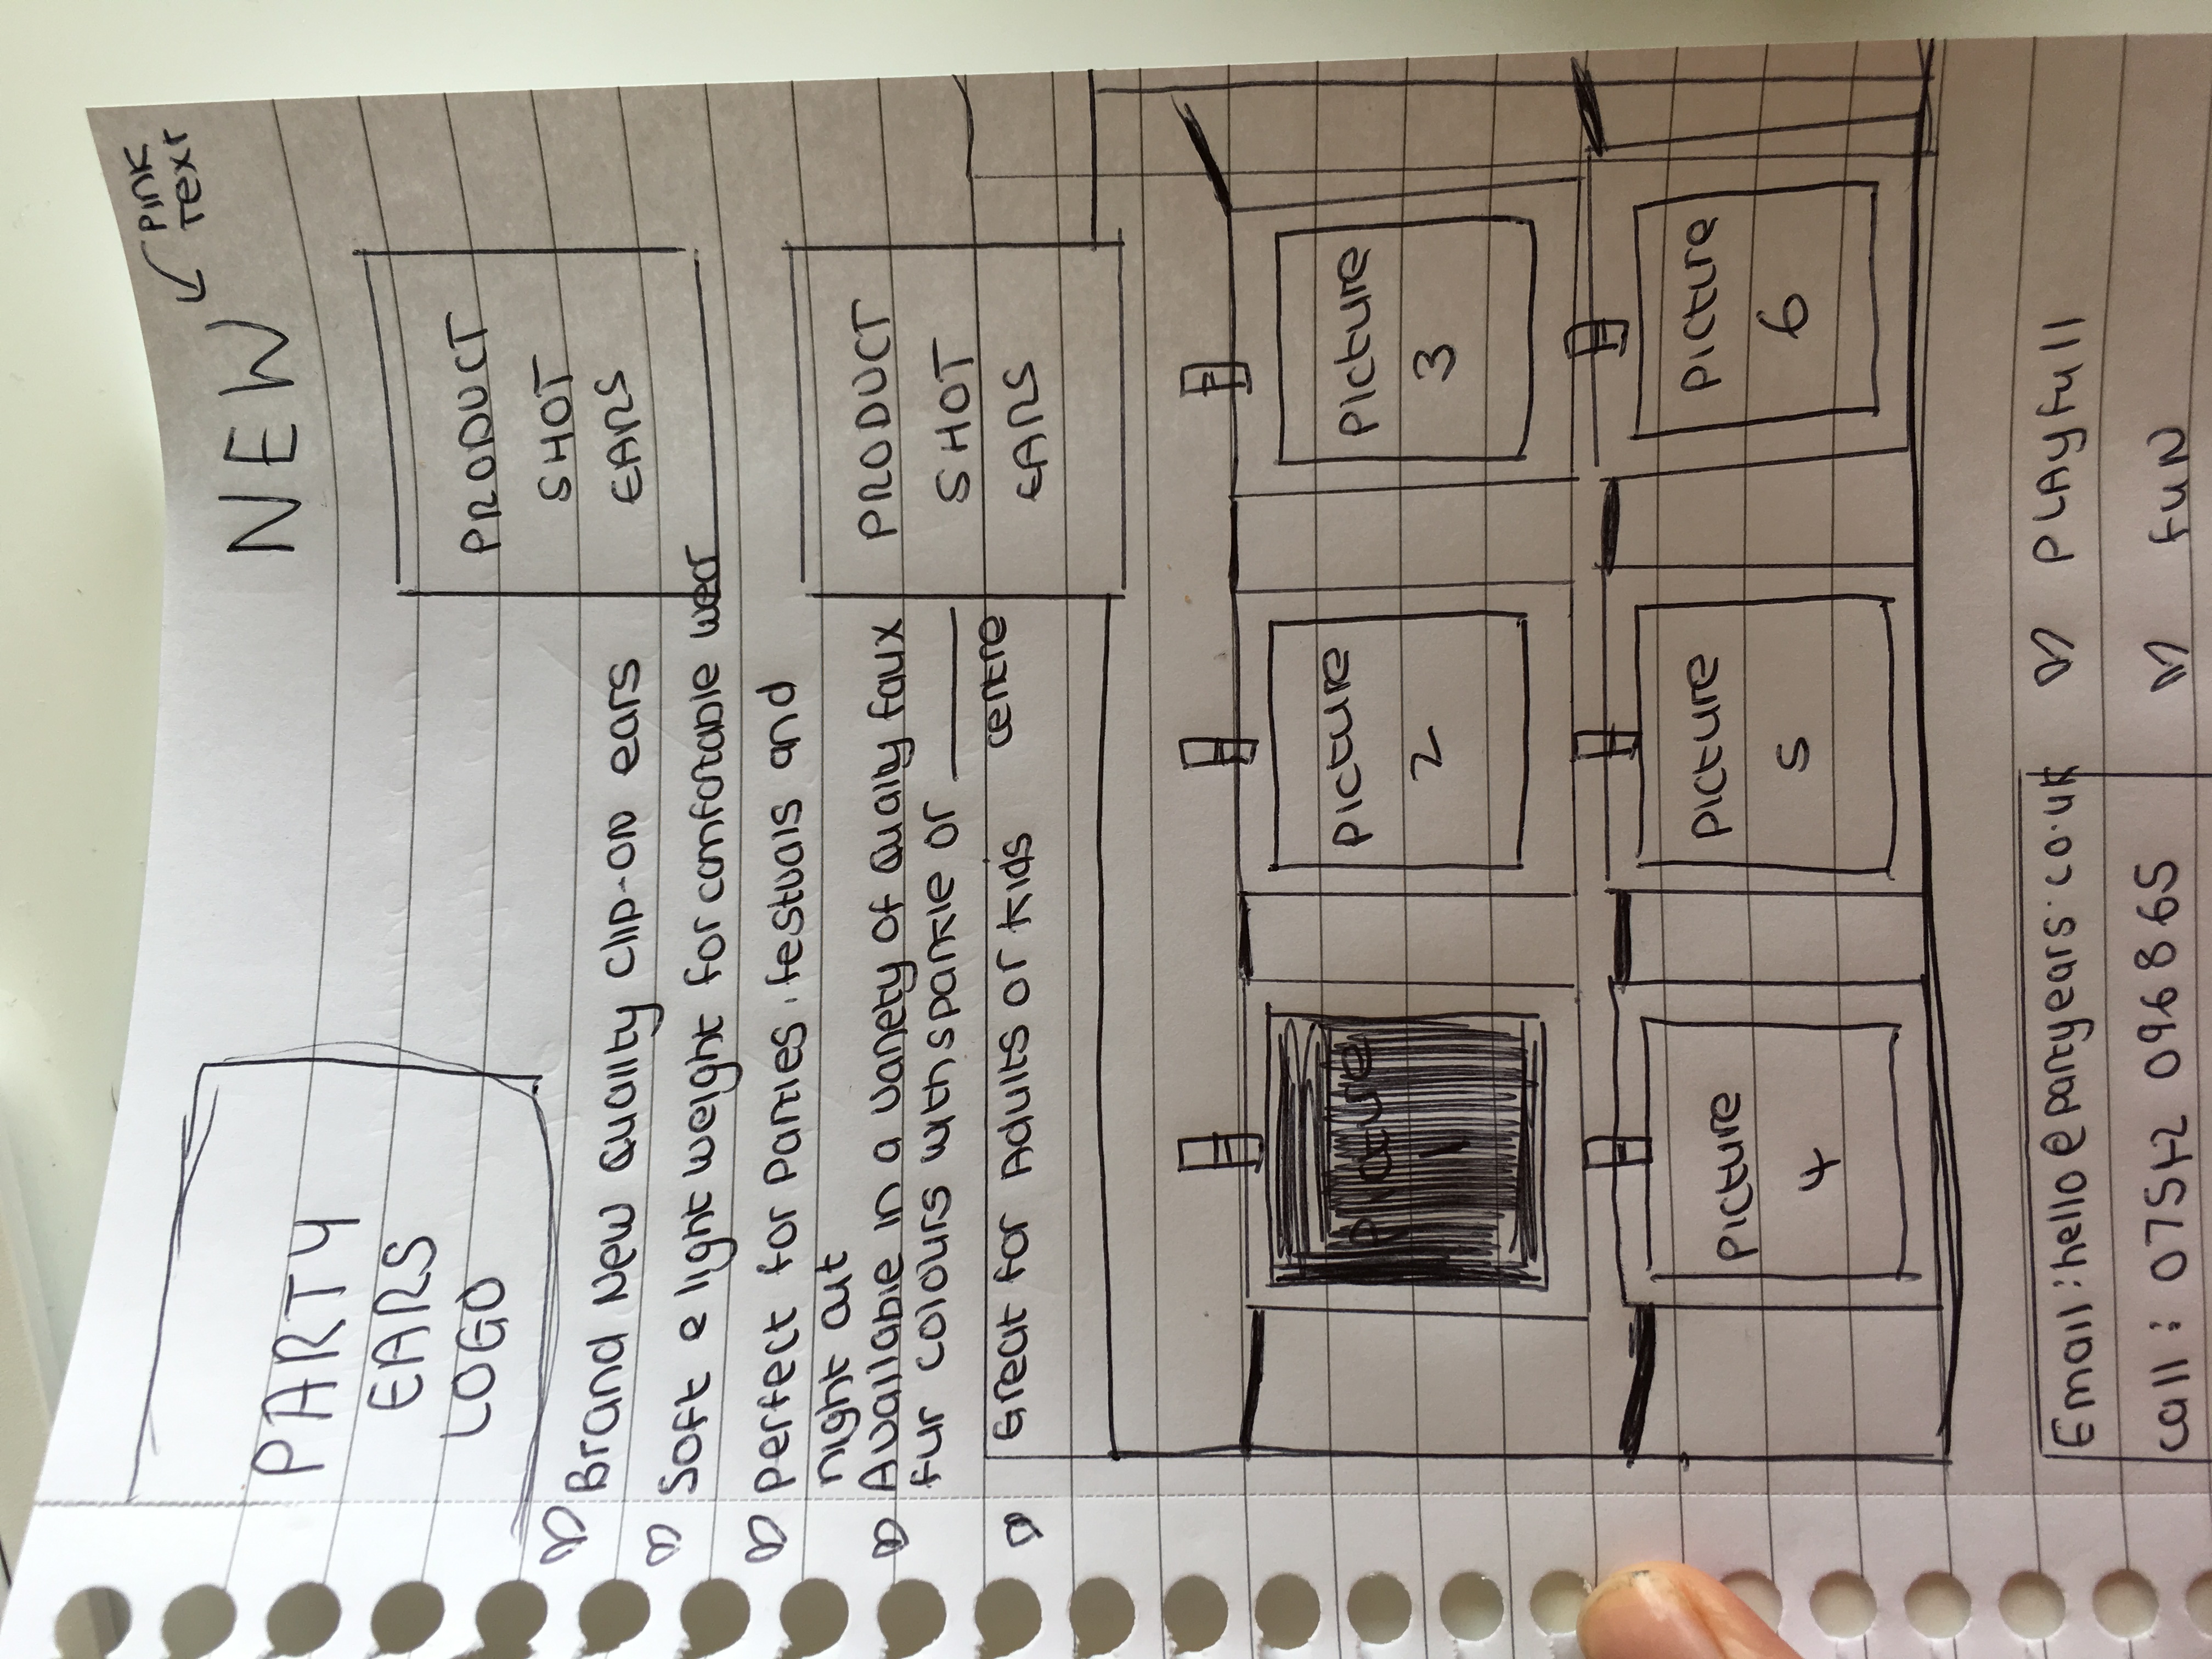 PINK
TEXT
NEW
PARTY
EARS
LOGO
PRODUCT
SHOT
EARS
Brand New Quality clip-on ears
Soft & light weight for comfortable wear
Perfect for parties, festivals and
night out
Available in a variety of quality faux
fur colours with sparkle or ____
centre
Great for Adults or kids
PRODUCT
SHOT
EARS
Picture
1
Picture
2
Picture
3
Picture
4
Picture
5
Picture
6
Email: hello@partyears.co.uk
Call: 07542 096865
PLAYfull
FUN